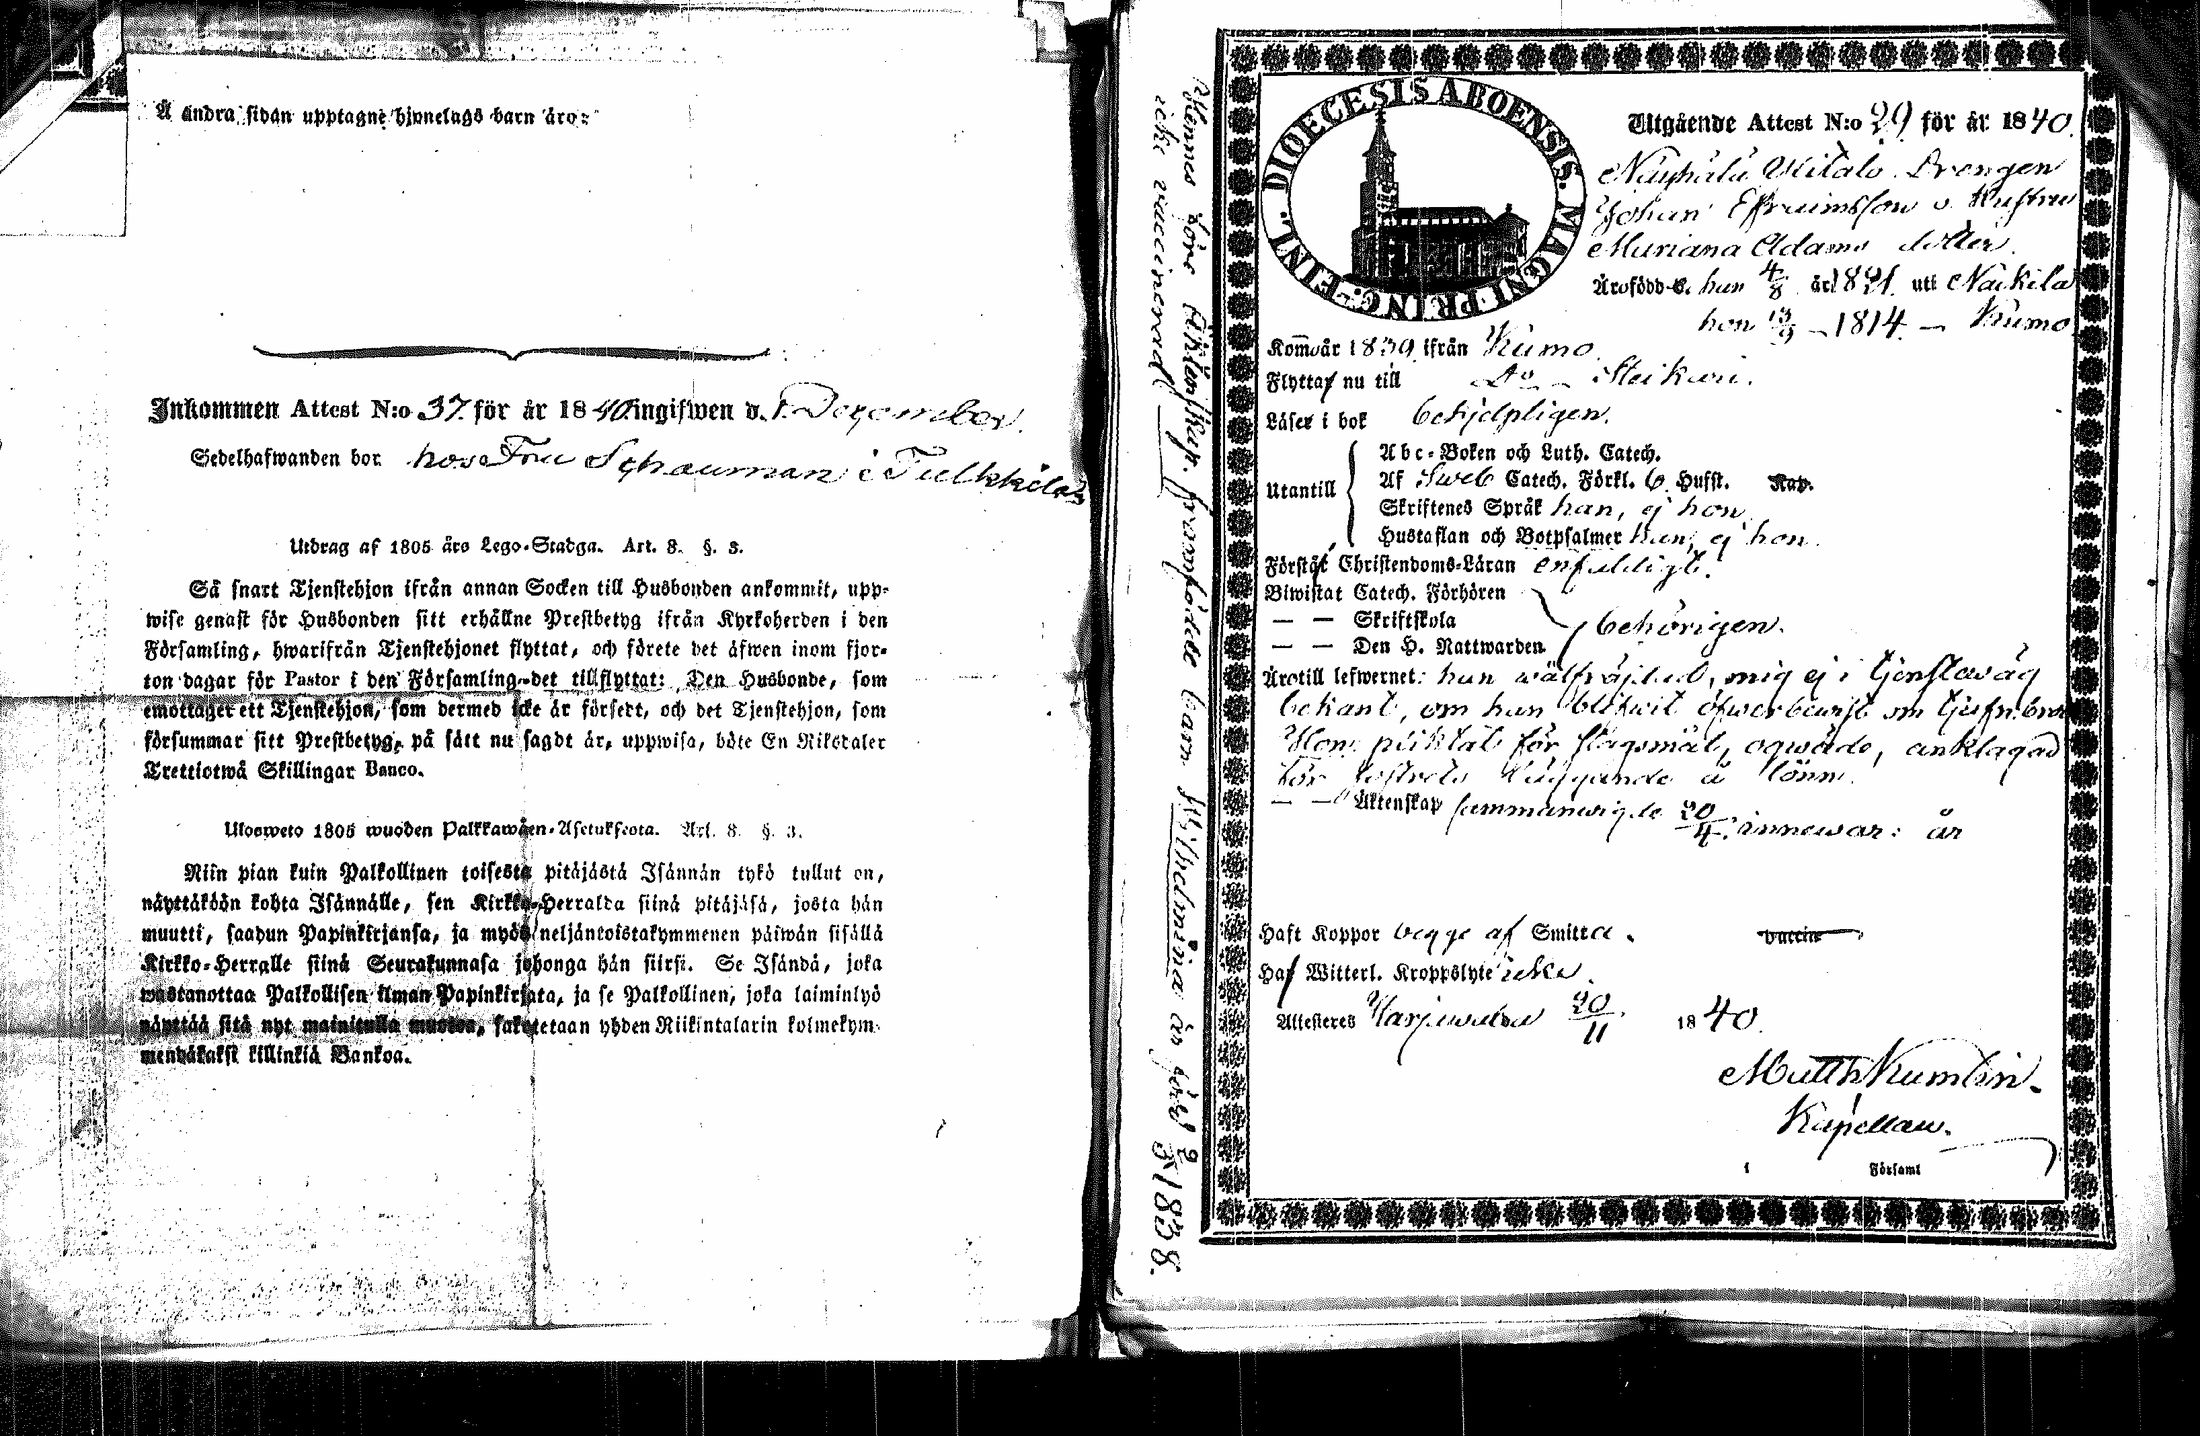 Å andra sidan upptagne hjonelags barn äro:
Inkommen Attest N:o 37 för år 1840 ingifwen d. 1 December.
Sedelhafwanden bor hos Fru Schauman i Tulkkila
Utdrag af 1805 års Lego-Stadga. Art. 8. §. 3.
Så snart Tjenstehjon ifrån annan Socken till Husbonden ankommit, upp-
wise genast för Husbonden sitt erhållne Prestbetyg ifrån Kyrkoherden i den
Församling, hwarifrån Tjenstehjonet flyttat, och förete det äfwen inom fjor-
ton dagar för Pastor i den Församling det tillflyttat: Den Husbonde, som
emottager ett Tjenstehjon, som dermed icke är försedt, och det Tjenstehjon, som
försummar sitt Prestbetyg, på sätt nu sagdt är, uppwisa, böte En Riksdaler
Trettiotwå Skillingar Banco.
Ulosweto 1805 wuoden Palkkawäen-Asetuksesta. Art. 8. §. 3.
Niin pian kuin Palkollinen toisesta pitäjästä Isännän tykö tullut on,
näyttäköön kohta Isännälle, sen Kirkko-Herralda siinä pitäjäsä, josta hän
muutti, saadun Papinkirjansa, ja myös neljäntoistakymmenen päiwän sisällä
Kirkko-Herralle siinä Seurakunnasa johonga hän siirsi. Se Isändä, joka
wastanottaa Palkollisen ilman Papinkirjata, ja se Palkollinen, joka laiminlyö
näyttää sitä nyt mainitulla muotoa, sakotetaan yhden Riikintalarin kolmekym-
mendäkaksi killinkiä Bankoa.
Hennes före äktenskap. framfödde barn Wilhelmina är född 9/3 1838.
icke vaccinerad
DIOECESIS ABOENSIS. MAGNI PRINC. FINL.
Utgående Attest N:o 29 för år 1840.
Ylitalo Drengen
Johan Effraimsson o. Hustru
Mariana Adams dotter.
Äro född-e. han 4/8 år 1821. uti Nakkila
hon 13/9 - 1814. - Kumo
Kommo år 1839 ifrån Kumo.
Flytta nu till Do - Steikari.
Läser i bok behjelpligen.
Utantill
Abc-Boken och Luth. Catech.
Af Sweb Catech. Förkl. 6. Hufst. Kap.
Skriftenes Språk han, ej hon
Hustaflan och Botpsalmer han, ej hon.
Förstår Christendoms-Läran enfaldigt.
Biwistat Catech. Förhören
— — Skriftskola
— — Den H. Nattwarden
behörigen.
Äro till lefwernet: han wälfräjdad, mig ej i tjenstewäg
bekant, om han blifwit öfwerbewist om
Hon för slagsmål, oqwäde, anklagad
för fostrets läggande å lönn.
— — Äktenskap sammanwigde 20/4. innewar: år
Haft Koppor begge af Smitta. vaccin
Haf Witterl. Kroppslyte icke.
Attesteres Harjawalda 20/11. 1840.
Matth Kumlin.
Kapellan.
i Församl